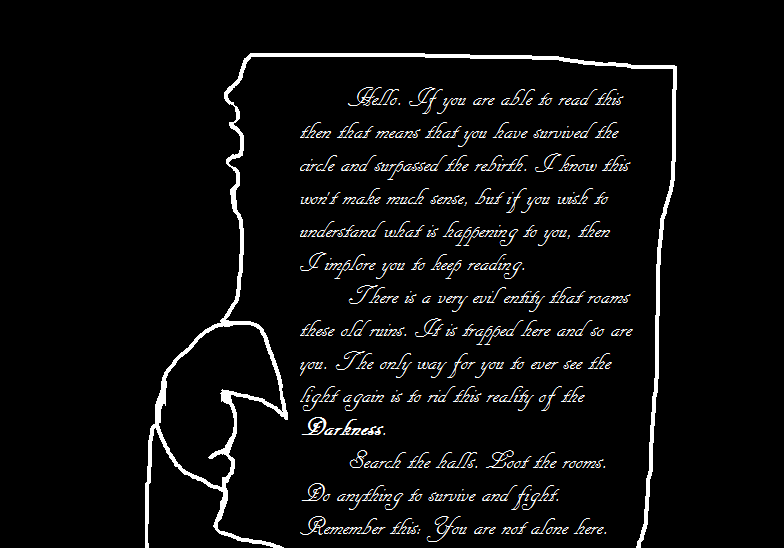 Hello. If you are able to read this
then that means that you have survived the
circle and surpassed the rebirth. I know this
won't make much sense, but if you wish to
understand what is happening to you, then
I implore you to keep reading.
There is a very evil entity that roams
these old ruins. It is trapped here and so are
you. The only way for you to ever see the
light again is to rid this reality of the
Darkness.
Search the halls. Loot the rooms.
Do anything to survive and fight.
Remember this: You are not alone here.